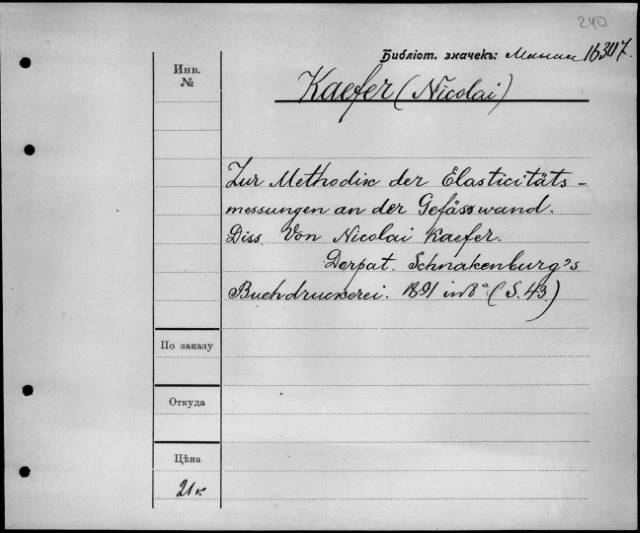 240
Библіот. значекъ: 16307.
Инв.
№
Kaefer (Nicolai)
Zur Methodik der Elasticitäts-
messungen an der Gefässwand.
Diss. Von Nicolai Kaefer.
Dorpat. Schnakenburg's
Buchdruckerei. 1891 in 8° (S. 43.)
По заказу
Откуда
Цѣна
21к